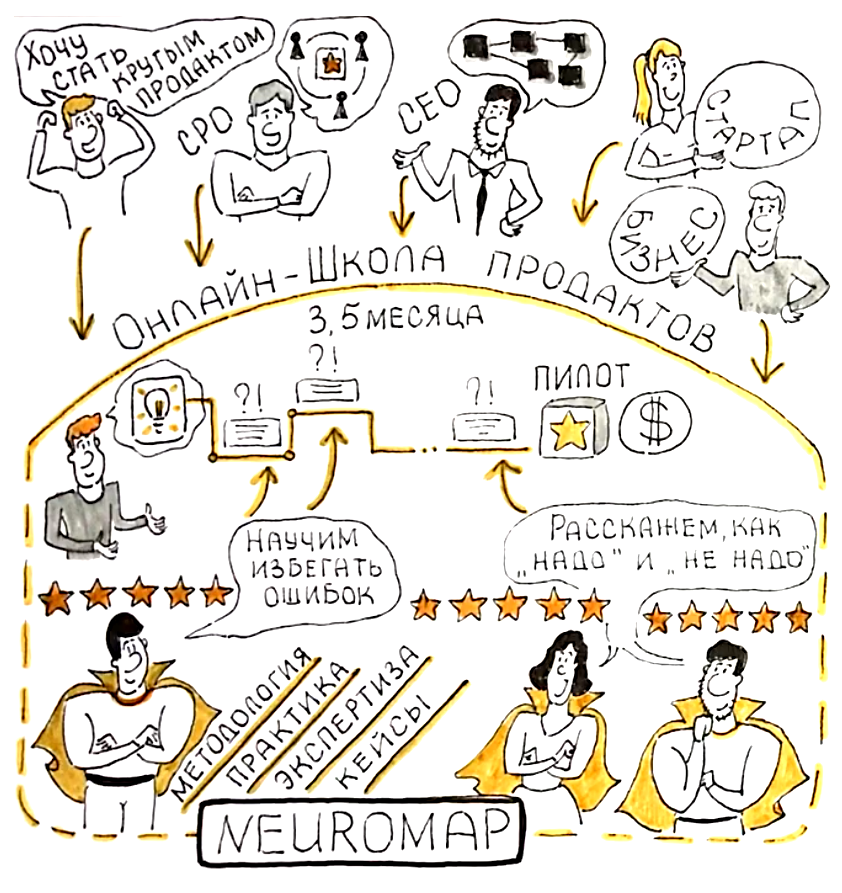 Хочу
стать
крутым
продактом
CPO
CEO
Стартап
Бизнес
Онлайн-Школа продактов
3,5 месяца
?!
?!
?!
Пилот
$
Научим
избегать
ошибок
Расскажем, как
„надо" и „не надо"
Методология
Практика
Экспертиза
Кейсы
NEUROMAP